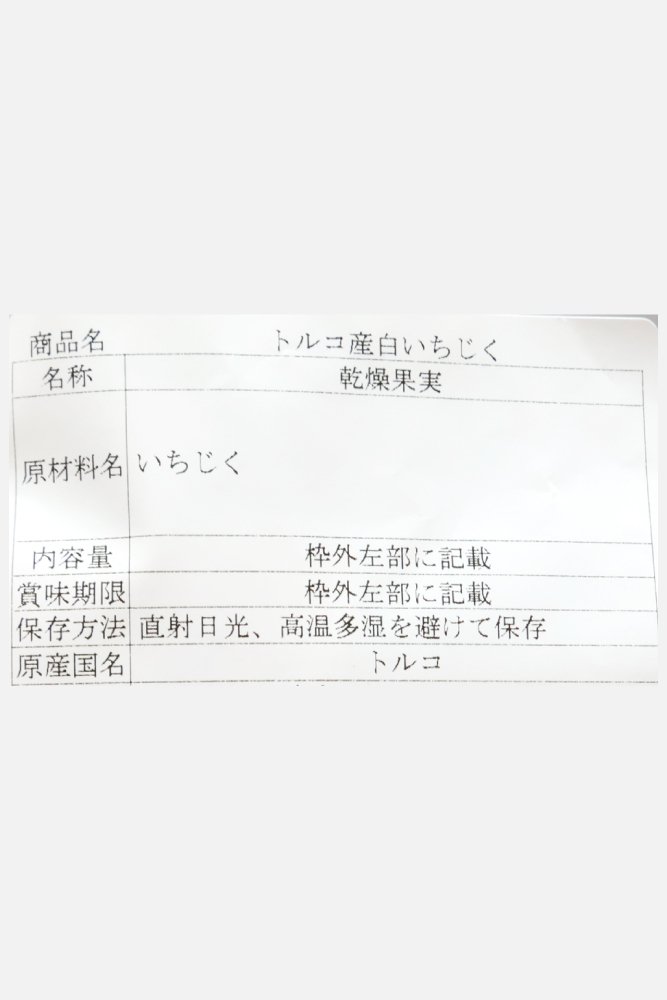 商品名 トルコ産白いちじく
名称 乾燥果実
原材料名 いちじく
内容量 枠外左部に記載
賞味期限 枠外左部に記載
保存方法 直射日光、高温多湿を避けて保存
原産国名 トルコ